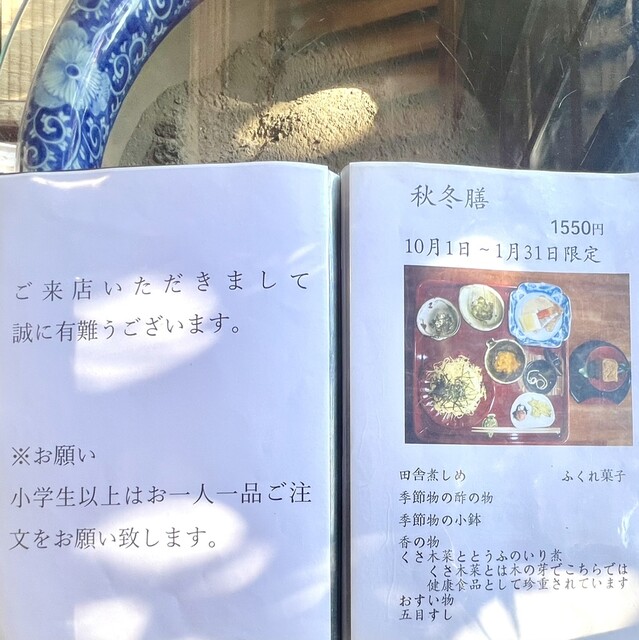 ご来店いただきまして
誠に有難うございます。
※お願い
小学生以上はお一人一品ご注
文をお願い致します。
秋冬膳
1550円
10月1日～1月31日限定
田舎煮しめ ふくれ菓子
季節物の酢の物
季節物の小鉢
香の物
くさ木菜ととうふのいり煮
くさ木菜とは木の芽でこちらでは
健康食品として珍重されています
おすい物
五目すし